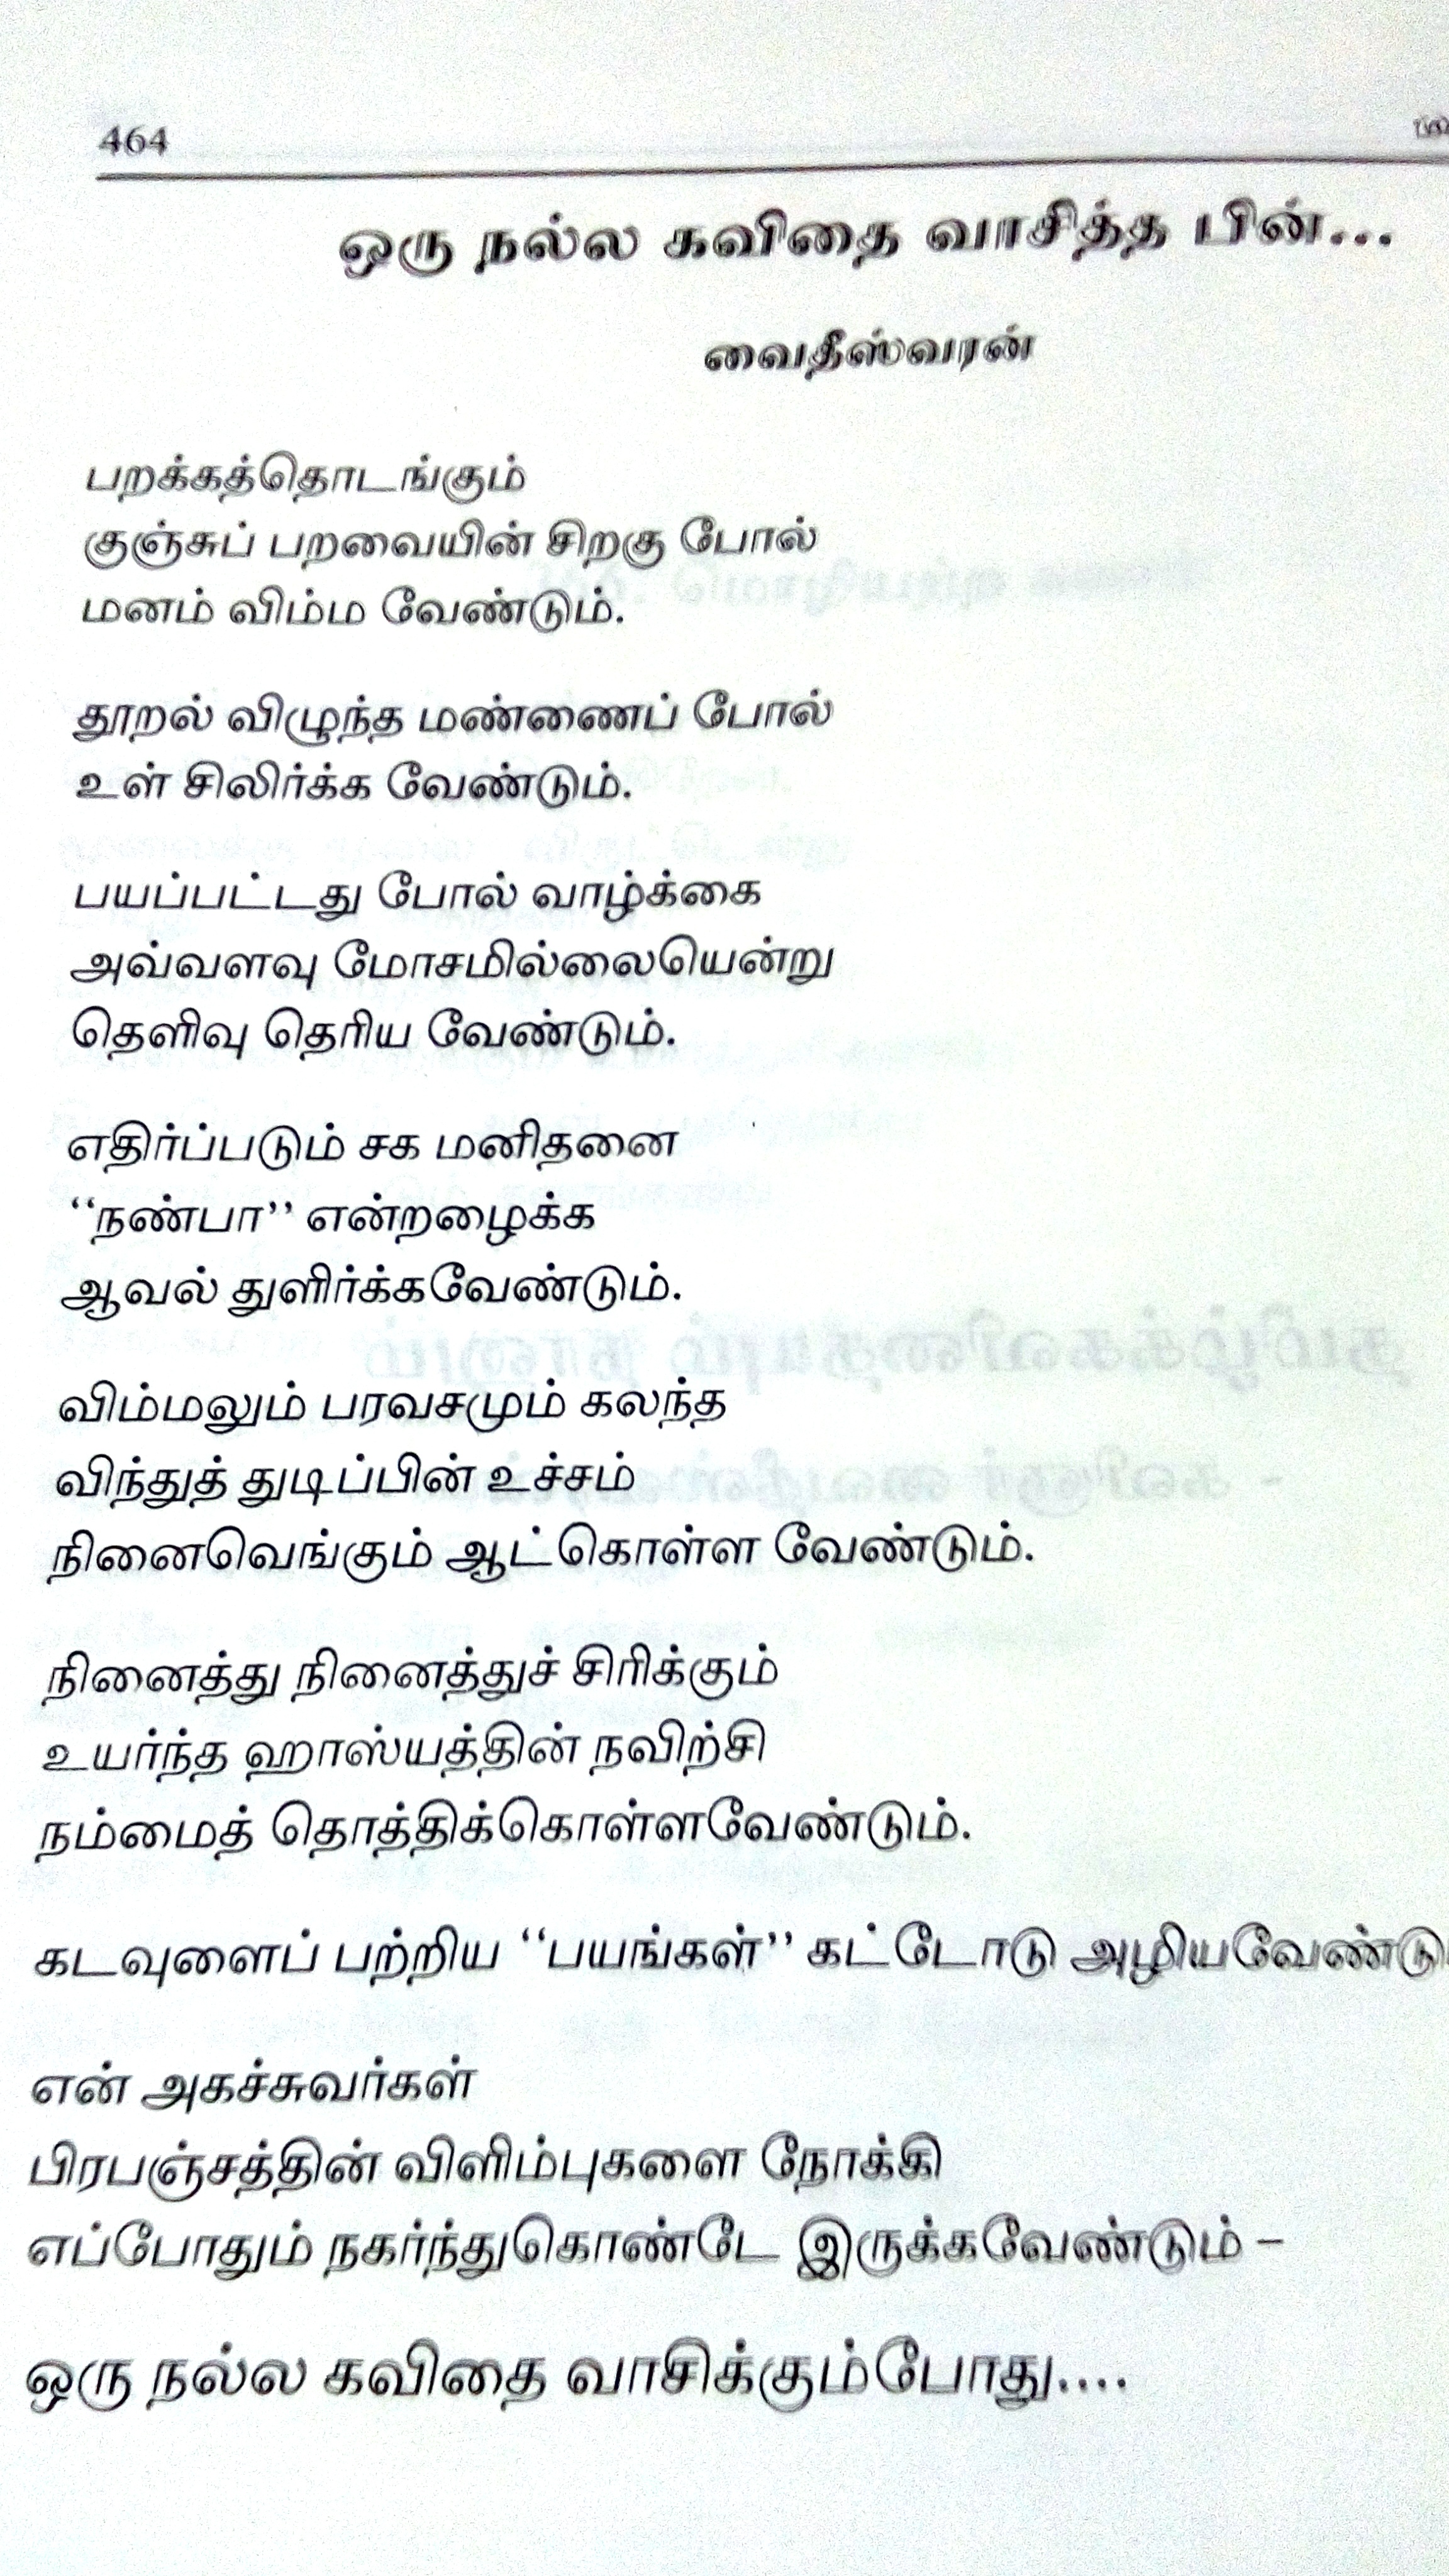 464
ஒரு நல்ல கவிதை வாசித்த பின்...
வைதீஸ்வரன்
பறக்கத்தொடங்கும்
குஞ்சுப் பறவையின் சிறகு போல்
மனம் விம்ம வேண்டும்.
தூறல் விழுந்த மண்ணைப் போல்
உள் சிலிர்க்க வேண்டும்.
பயப்பட்டது போல் வாழ்க்கை
அவ்வளவு மோசமில்லையென்று
தெளிவு தெரிய வேண்டும்.
எதிர்ப்படும் சக மனிதனை
“நண்பா” என்றழைக்க
ஆவல் துளிர்க்கவேண்டும்.
விம்மலும் பரவசமும் கலந்த
விந்துத் துடிப்பின் உச்சம்
நினைவெங்கும் ஆட்கொள்ள வேண்டும்.
நினைத்து நினைத்துச் சிரிக்கும்
உயர்ந்த ஹாஸ்யத்தின் நவிற்சி
நம்மைத் தொத்திக்கொள்ளவேண்டும்.
கடவுளைப் பற்றிய “பயங்கள்” கட்டோடு அழியவேண்டு
என் அகச்சுவர்கள்
பிரபஞ்சத்தின் விளிம்புகளை நோக்கி
எப்போதும் நகர்ந்துகொண்டே இருக்கவேண்டும் –
ஒரு நல்ல கவிதை வாசிக்கும்போது....